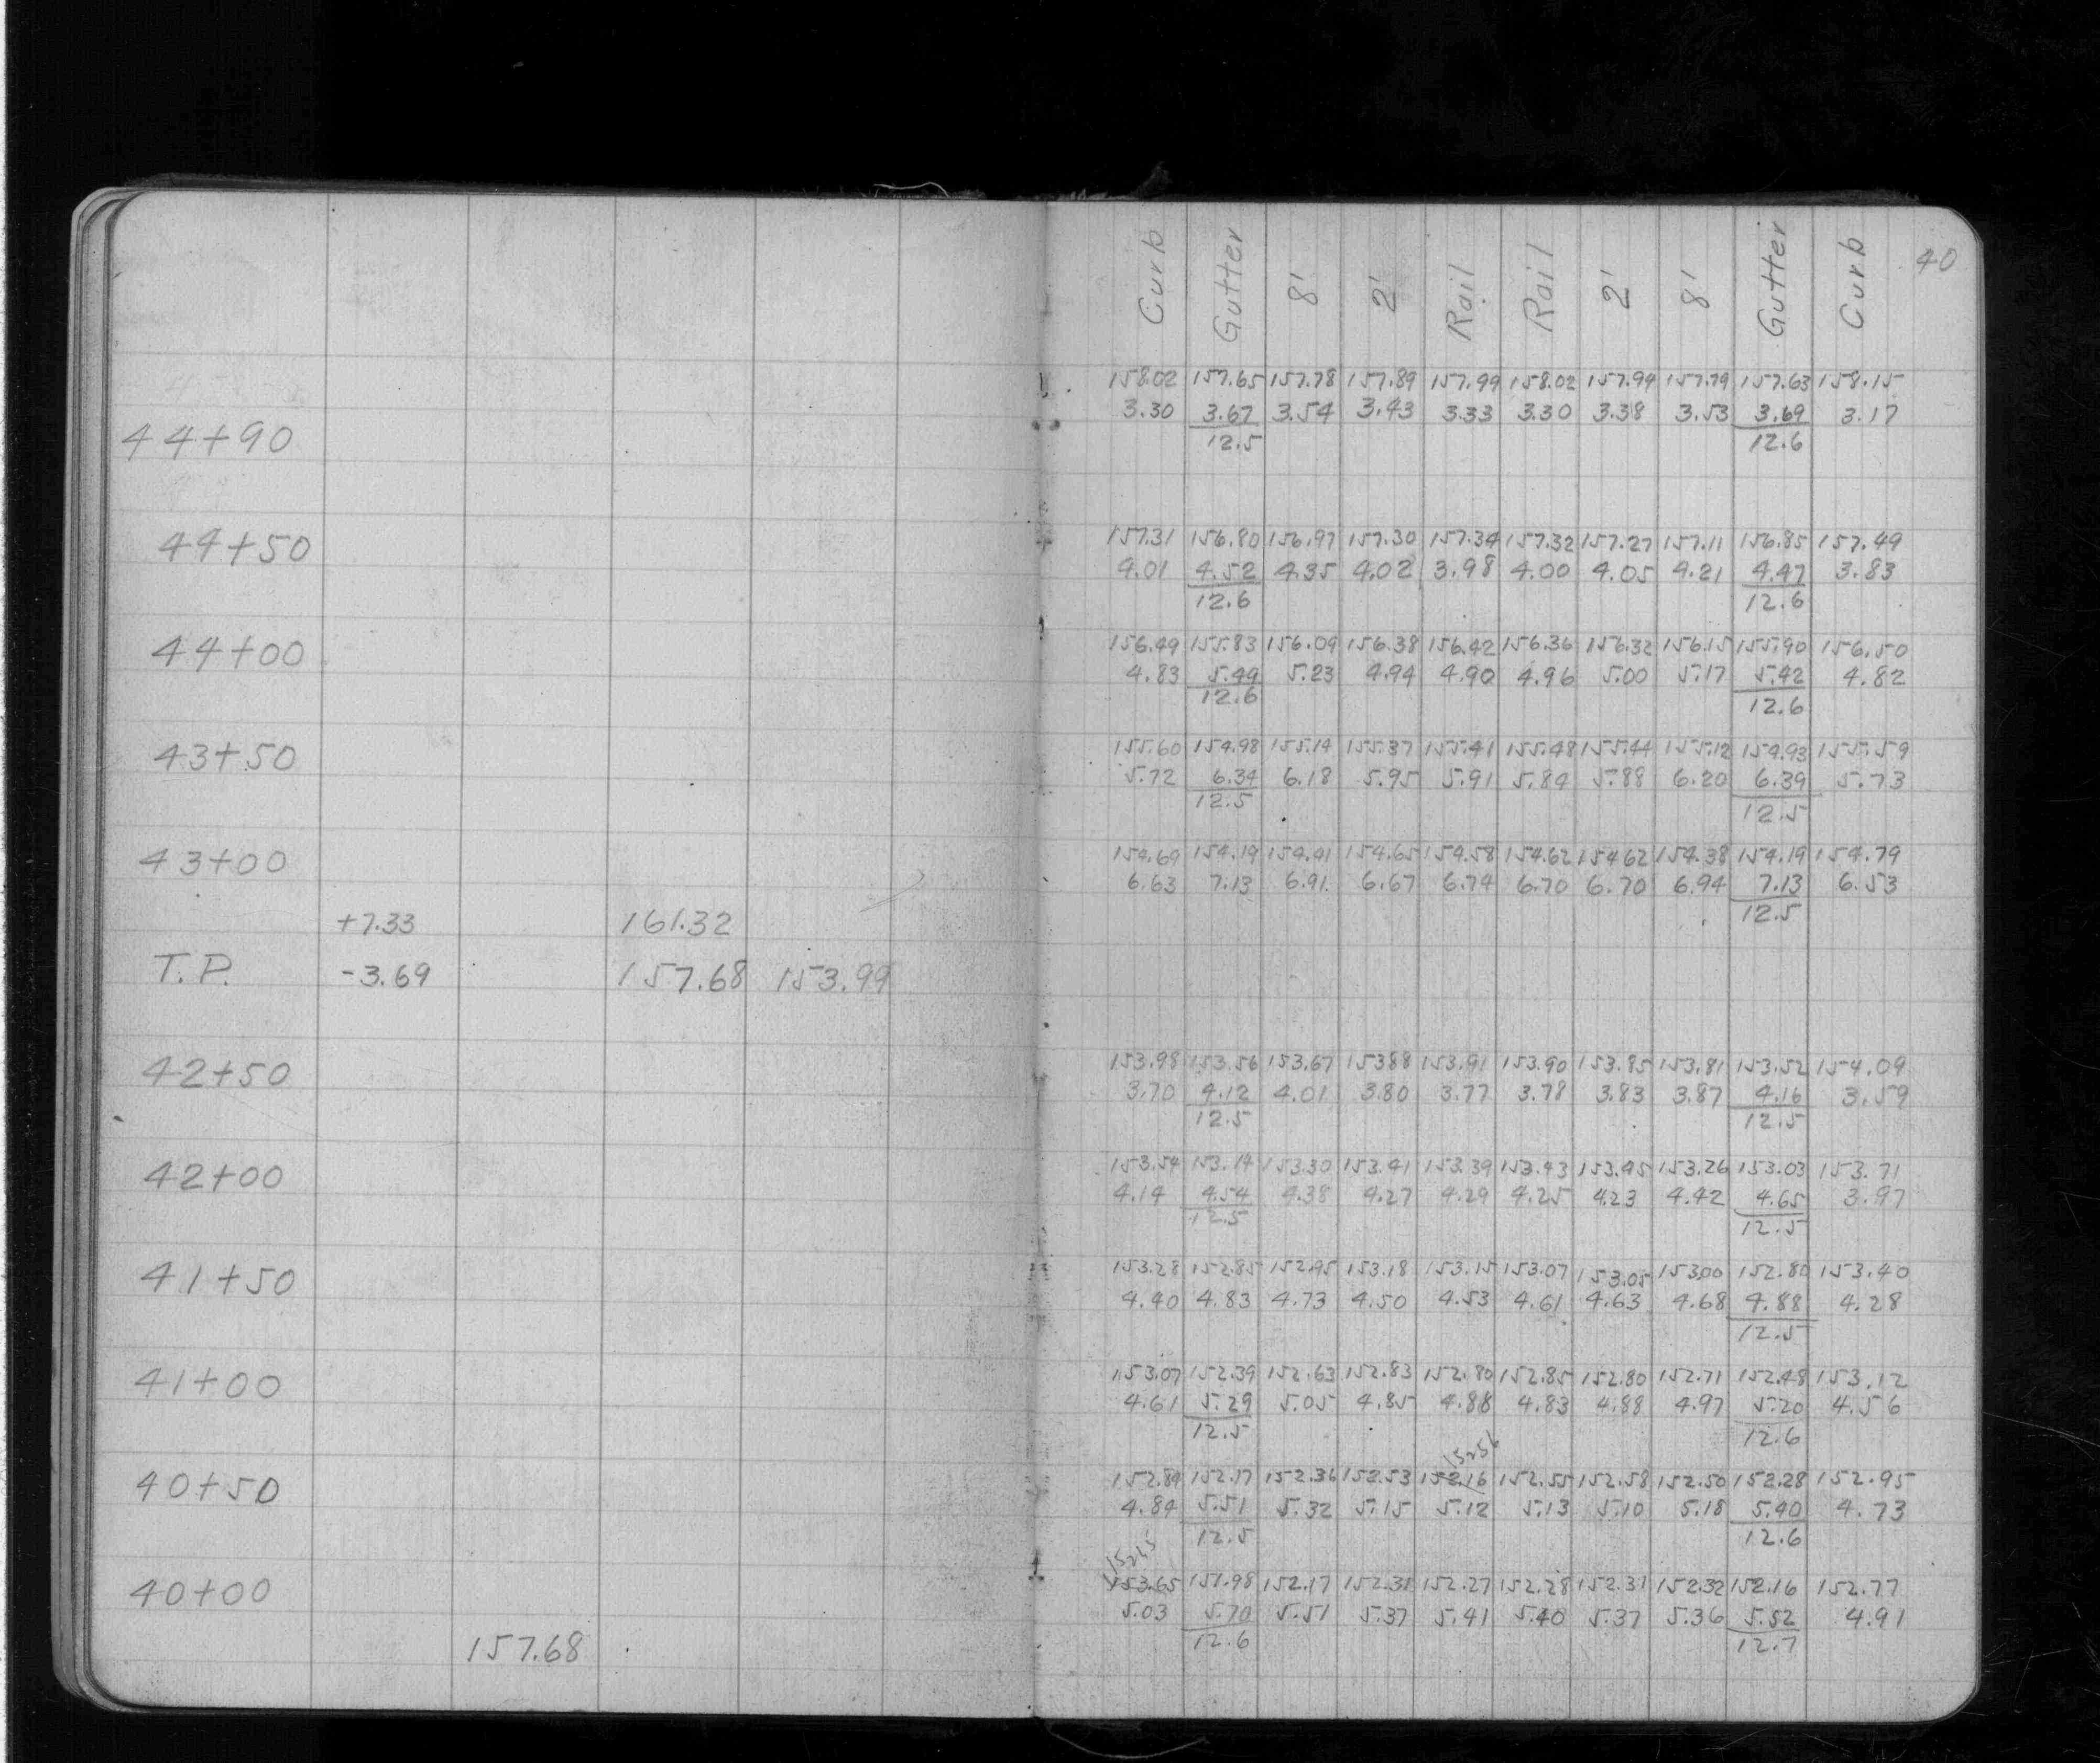 Curb Gutter 8' 2' Rail Rail 2' 8' Gutter Curb 40
158.02 157.65 157.78 157.89 157.99 158.02 157.94 157.79 157.63 158.15
3.30 3.67 3.54 3.43 3.33 3.30 3.38 3.53 3.69 3.17
44+90 12.5 12.6
157.31 156.80 156.97 157.30 157.34 157.32 157.27 157.11 156.85 157.49
44+50 4.01 4.52 4.35 4.02 3.98 4.00 4.05 4.21 4.47 3.83
12.6 12.6
156.49 155.83 156.09 156.38 156.42 156.36 156.32 156.15 155.90 156.50
44+00 4.83 5.49 5.23 4.94 4.90 4.96 5.00 5.17 5.42 4.82
12.6 12.6
155.60 154.98 155.14 155.37 155.41 155.48 155.44 155.12 154.93 155.59
43+50 5.72 6.34 6.18 5.95 5.91 5.84 5.88 6.20 6.39 5.73
12.5 12.5
154.69 154.19 154.41 154.65 154.58 154.62 154.62 154.38 154.19 154.79
43+00 6.63 7.13 6.91 6.67 6.74 6.70 6.70 6.94 7.13 6.53
12.5
+7.33 161.32
T.P. -3.69 157.68 153.99
153.98 153.56 153.67 153.88 153.91 153.90 153.85 153.81 153.52 154.09
42+50 3.70 4.12 4.01 3.80 3.77 3.78 3.83 3.87 4.16 3.59
12.5 12.5
153.54 153.14 153.30 153.41 153.39 153.43 153.45 153.26 153.03 153.71
42+00 4.14 4.54 4.38 4.27 4.29 4.25 4.23 4.42 4.65 3.97
12.5 12.5
153.28 152.85 152.95 153.18 153.15 153.07 153.05 153.00 152.80 153.40
41+50 4.40 4.83 4.73 4.50 4.53 4.61 4.63 4.68 4.88 4.28
12.5
153.07 152.39 152.63 152.83 152.80 152.85 152.80 152.71 152.48 153.12
41+00 4.61 5.29 5.05 4.85 4.88 4.83 4.88 4.97 5.20 4.56
12.5 12.6
152.56
152.84 152.17 152.36 152.53 152.16 152.55 152.58 152.50 152.28 152.95
40+50 4.84 5.51 5.32 5.15 5.12 5.13 5.10 5.18 5.40 4.73
12.5 12.6
153.65 151.98 152.17 152.31 152.27 152.28 152.31 152.32 152.16 152.77
40+00 5.03 5.70 5.51 5.37 5.41 5.40 5.37 5.36 5.52 4.91
12.6 12.7
157.68